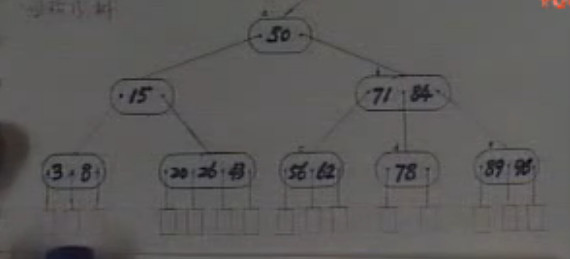 50
15 71 84
3 8 20 26 43 56 62 78 89 96